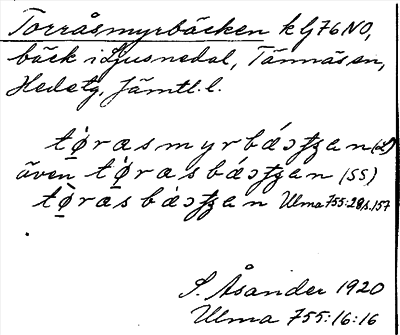 Torråsmyrbäcken k G76NO,
bäck i Ljusnedal, Tännäs sn,
Hede tg, Jämtl. l.
tø̀rasmyrbǽɔtʒen (L)
även tø̀rasbǽɔtʒen (SS)
tø̀rasbǽɔtʒen Ulma 755:28 s. 157
S. Åsander 1920
Ulma 755:16:16